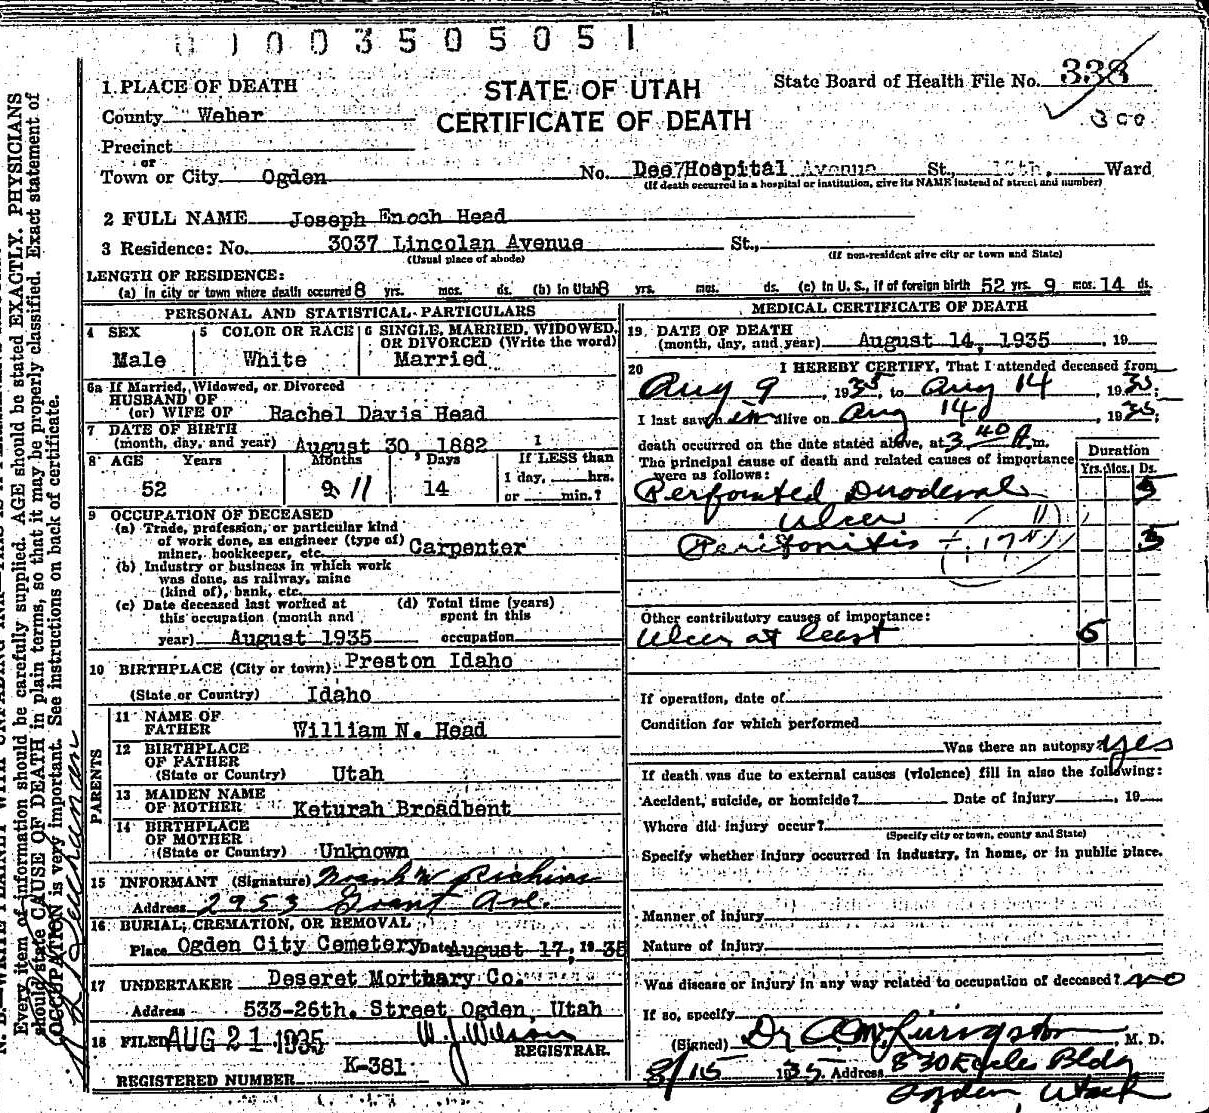 0 1 0 0 3 5 0 5 0 5 1
STATE OF UTAH
CERTIFICATE OF DEATH
State Board of Health File No. 338
300
1 PLACE OF DEATH
County Weber
Precinct
or
Town or City Ogden No. Dee Hospital Avenue St., Ward
(If death occurred in a hospital or institution, give its NAME instead of street and number)
2 FULL NAME Joseph Enoch Head
3 Residence: No. 3037 Lincolan Avenue St.,
(Usual place of abode) (If non-resident give city or town and State)
LENGTH OF RESIDENCE:
(a) In city or town where death occurred 8 yrs. mos. ds. (b) In Utah 8 yrs. mos. ds. (c) In U. S., if of foreign birth 52 yrs. 9 mos. 14 ds.
PERSONAL AND STATISTICAL PARTICULARS
4 SEX
Male
5 COLOR OR RACE
White
6 SINGLE, MARRIED, WIDOWED, OR DIVORCED (Write the word)
Married
6a If Married, Widowed, or Divorced
HUSBAND OF
(or) WIFE OF Rachel Davis Head
7 DATE OF BIRTH
(month, day, and year) August 30 1882
8 AGE Years Months Days If LESS than
52 9 11 14 1 day, hrs.
or min.?
9 OCCUPATION OF DECEASED
(a) Trade, profession, or particular kind
of work done, as engineer (type of)
miner, bookkeeper, etc. Carpenter
(b) Industry or business in which work
was done, as railway, mine
(kind of), bank, etc.
(c) Date deceased last worked at (d) Total time (years)
this occupation (month and spent in this
year) August 1935 occupation
10 BIRTHPLACE (City or town) Preston Idaho
(State or Country) Idaho
PARENTS
11 NAME OF
FATHER William N. Head
12 BIRTHPLACE
OF FATHER
(State or Country) Utah
13 MAIDEN NAME
OF MOTHER Keturah Broadbent
14 BIRTHPLACE
OF MOTHER
(State or Country) Unknown
15 INFORMANT (Signature) Frank W Richins
Address 2953 Grant Ave.
16 BURIAL, CREMATION, OR REMOVAL
Place Ogden City Cemetery Date August 17, 1935
17 UNDERTAKER Deseret Mortuary Co.
Address 533-26th. Street Ogden, Utah
18 FILED AUG 21 1935 W. J. Wilson
REGISTRAR.
REGISTERED NUMBER K-381
MEDICAL CERTIFICATE OF DEATH
19 DATE OF DEATH
(month, day, and year) August 14, 1935, 19
20 I HEREBY CERTIFY, That I attended deceased from
Aug 9, 1935, to Aug 14 1935;
I last saw him alive on Aug 14, 1935;
death occurred on the date stated above, at 3 40 P. m.
The principal cause of death and related causes of importance
were as follows:
Duration
Yrs. Mos. Ds.
Perforated Duodenal 5
Ulcer
Peritonitis 3
Other contributory causes of importance:
Ulcer at least 5
If operation, date of
Condition for which performed
Was there an autopsy? yes
If death was due to external causes (violence) fill in also the following:
Accident, suicide, or homicide? Date of injury , 19
Where did injury occur?
(Specify city or town, county and State)
Specify whether injury occurred in industry, in home, or in public place.
Manner of Injury
Nature of Injury
Was disease or injury in any way related to occupation of deceased? no
If so, specify
(Signed) Dr , M. D.
8/15 1935 Address 830 Eccles Bldg
Ogden Utah
Every item of information should be carefully supplied. AGE should be stated EXACTLY. PHYSICIANS
should state CAUSE OF DEATH in plain terms, so that it may be properly classified. Exact statement of
OCCUPATION is very important. See instructions on back of certificate.